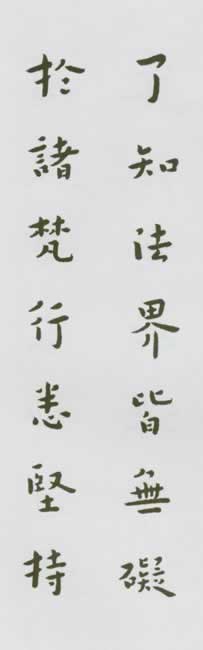 了知法界皆無礙
於諸梵行悉堅持